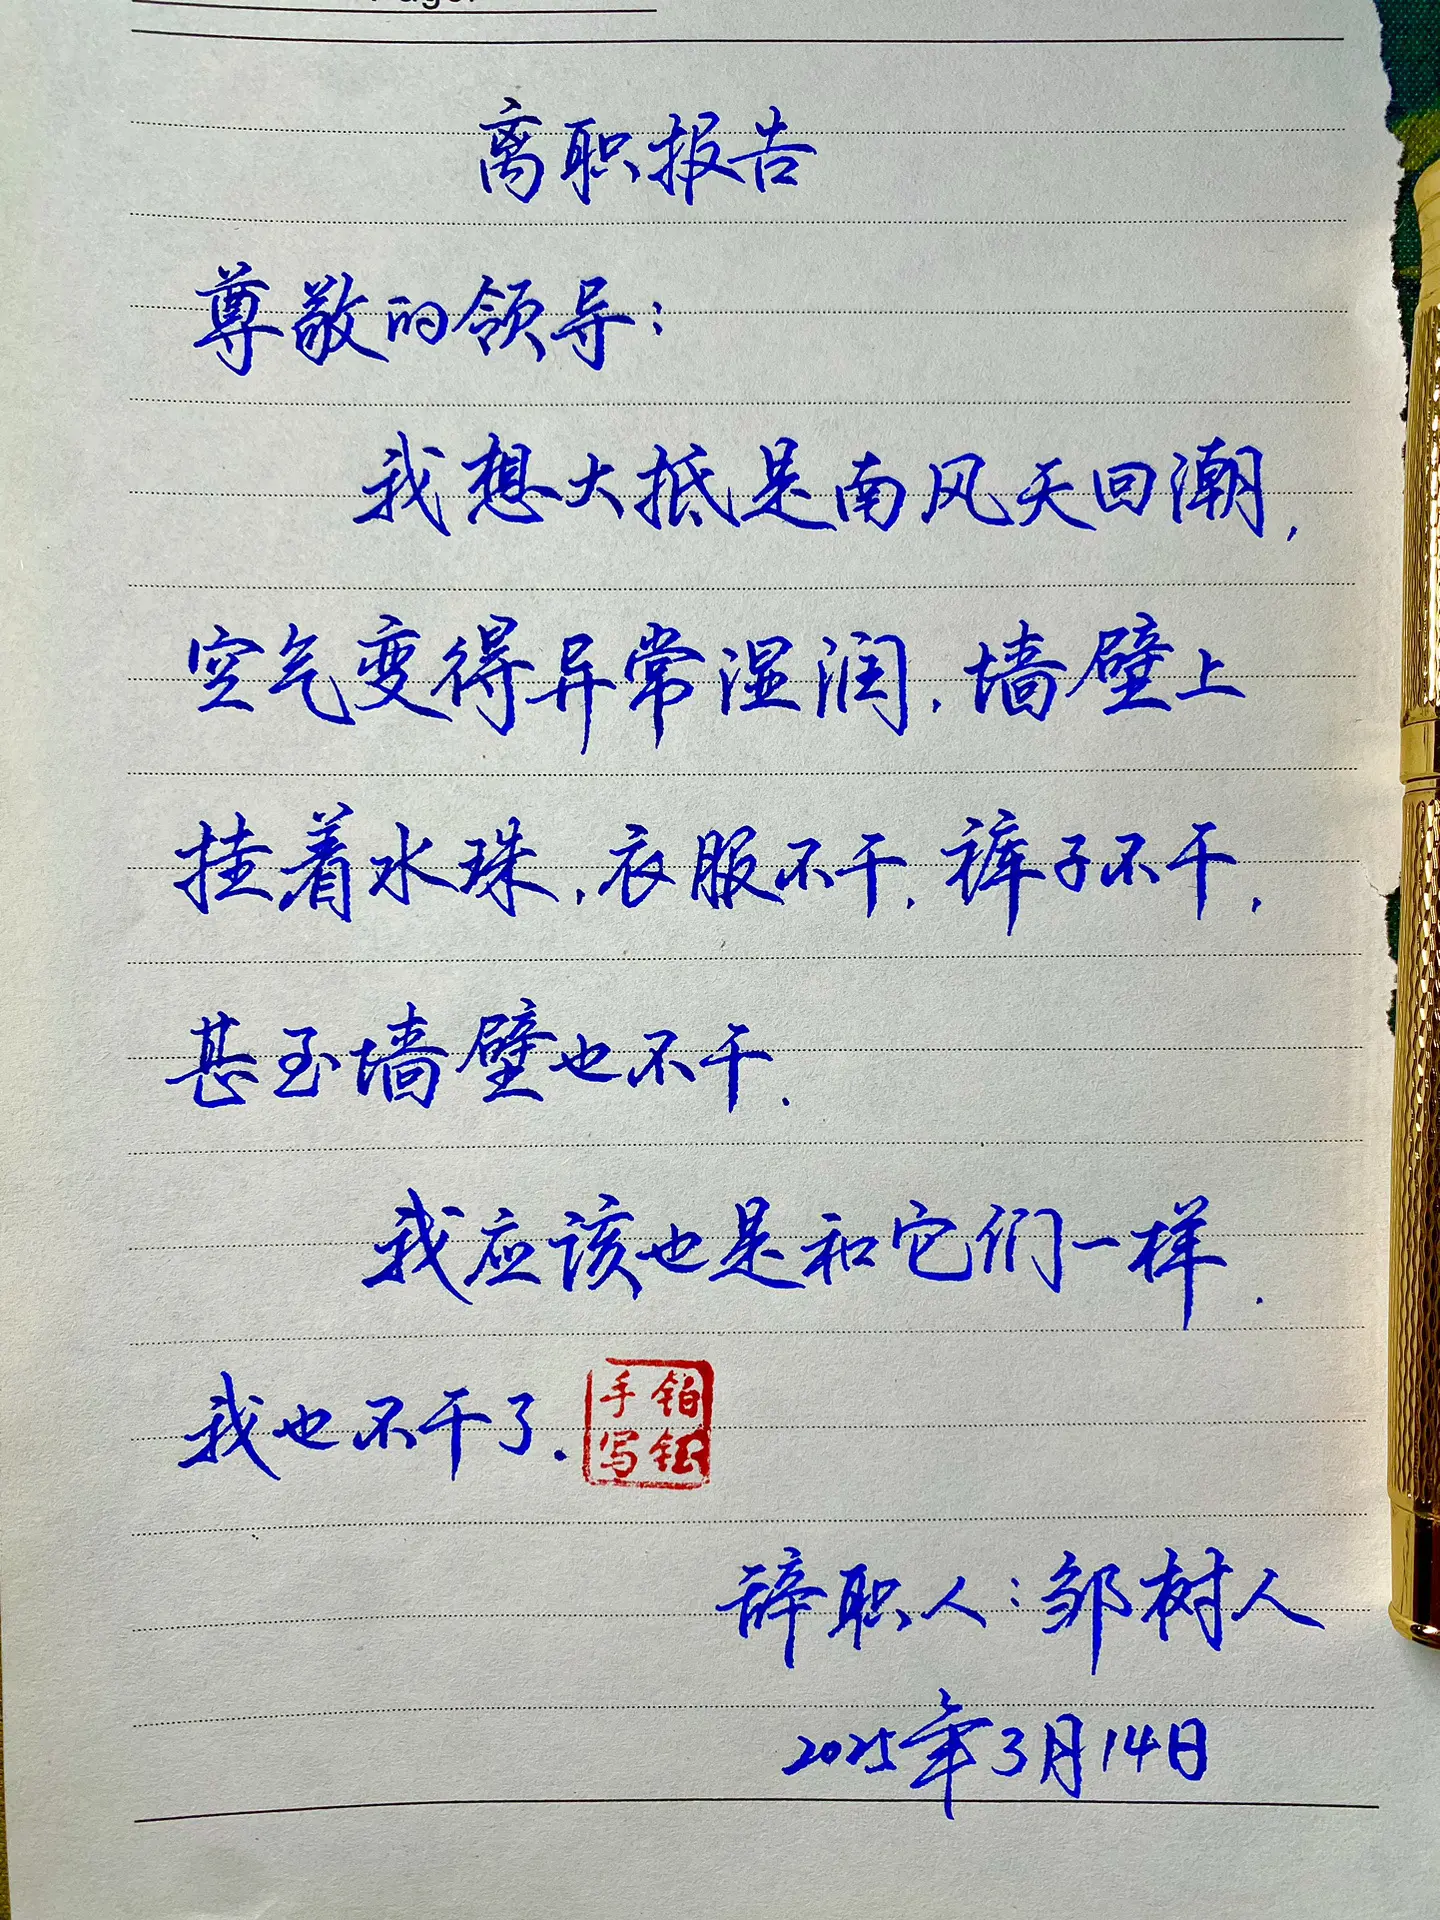 离职报告
尊敬的领导：
我想大抵是南风天回潮，
空气变得异常湿润，墙壁上
挂着水珠，衣服不干，裤子不干，
甚至墙壁也不干．
我应该也是和它们一样．
我也不干了．
手写
辞职人：邹树人
2025年3月14日